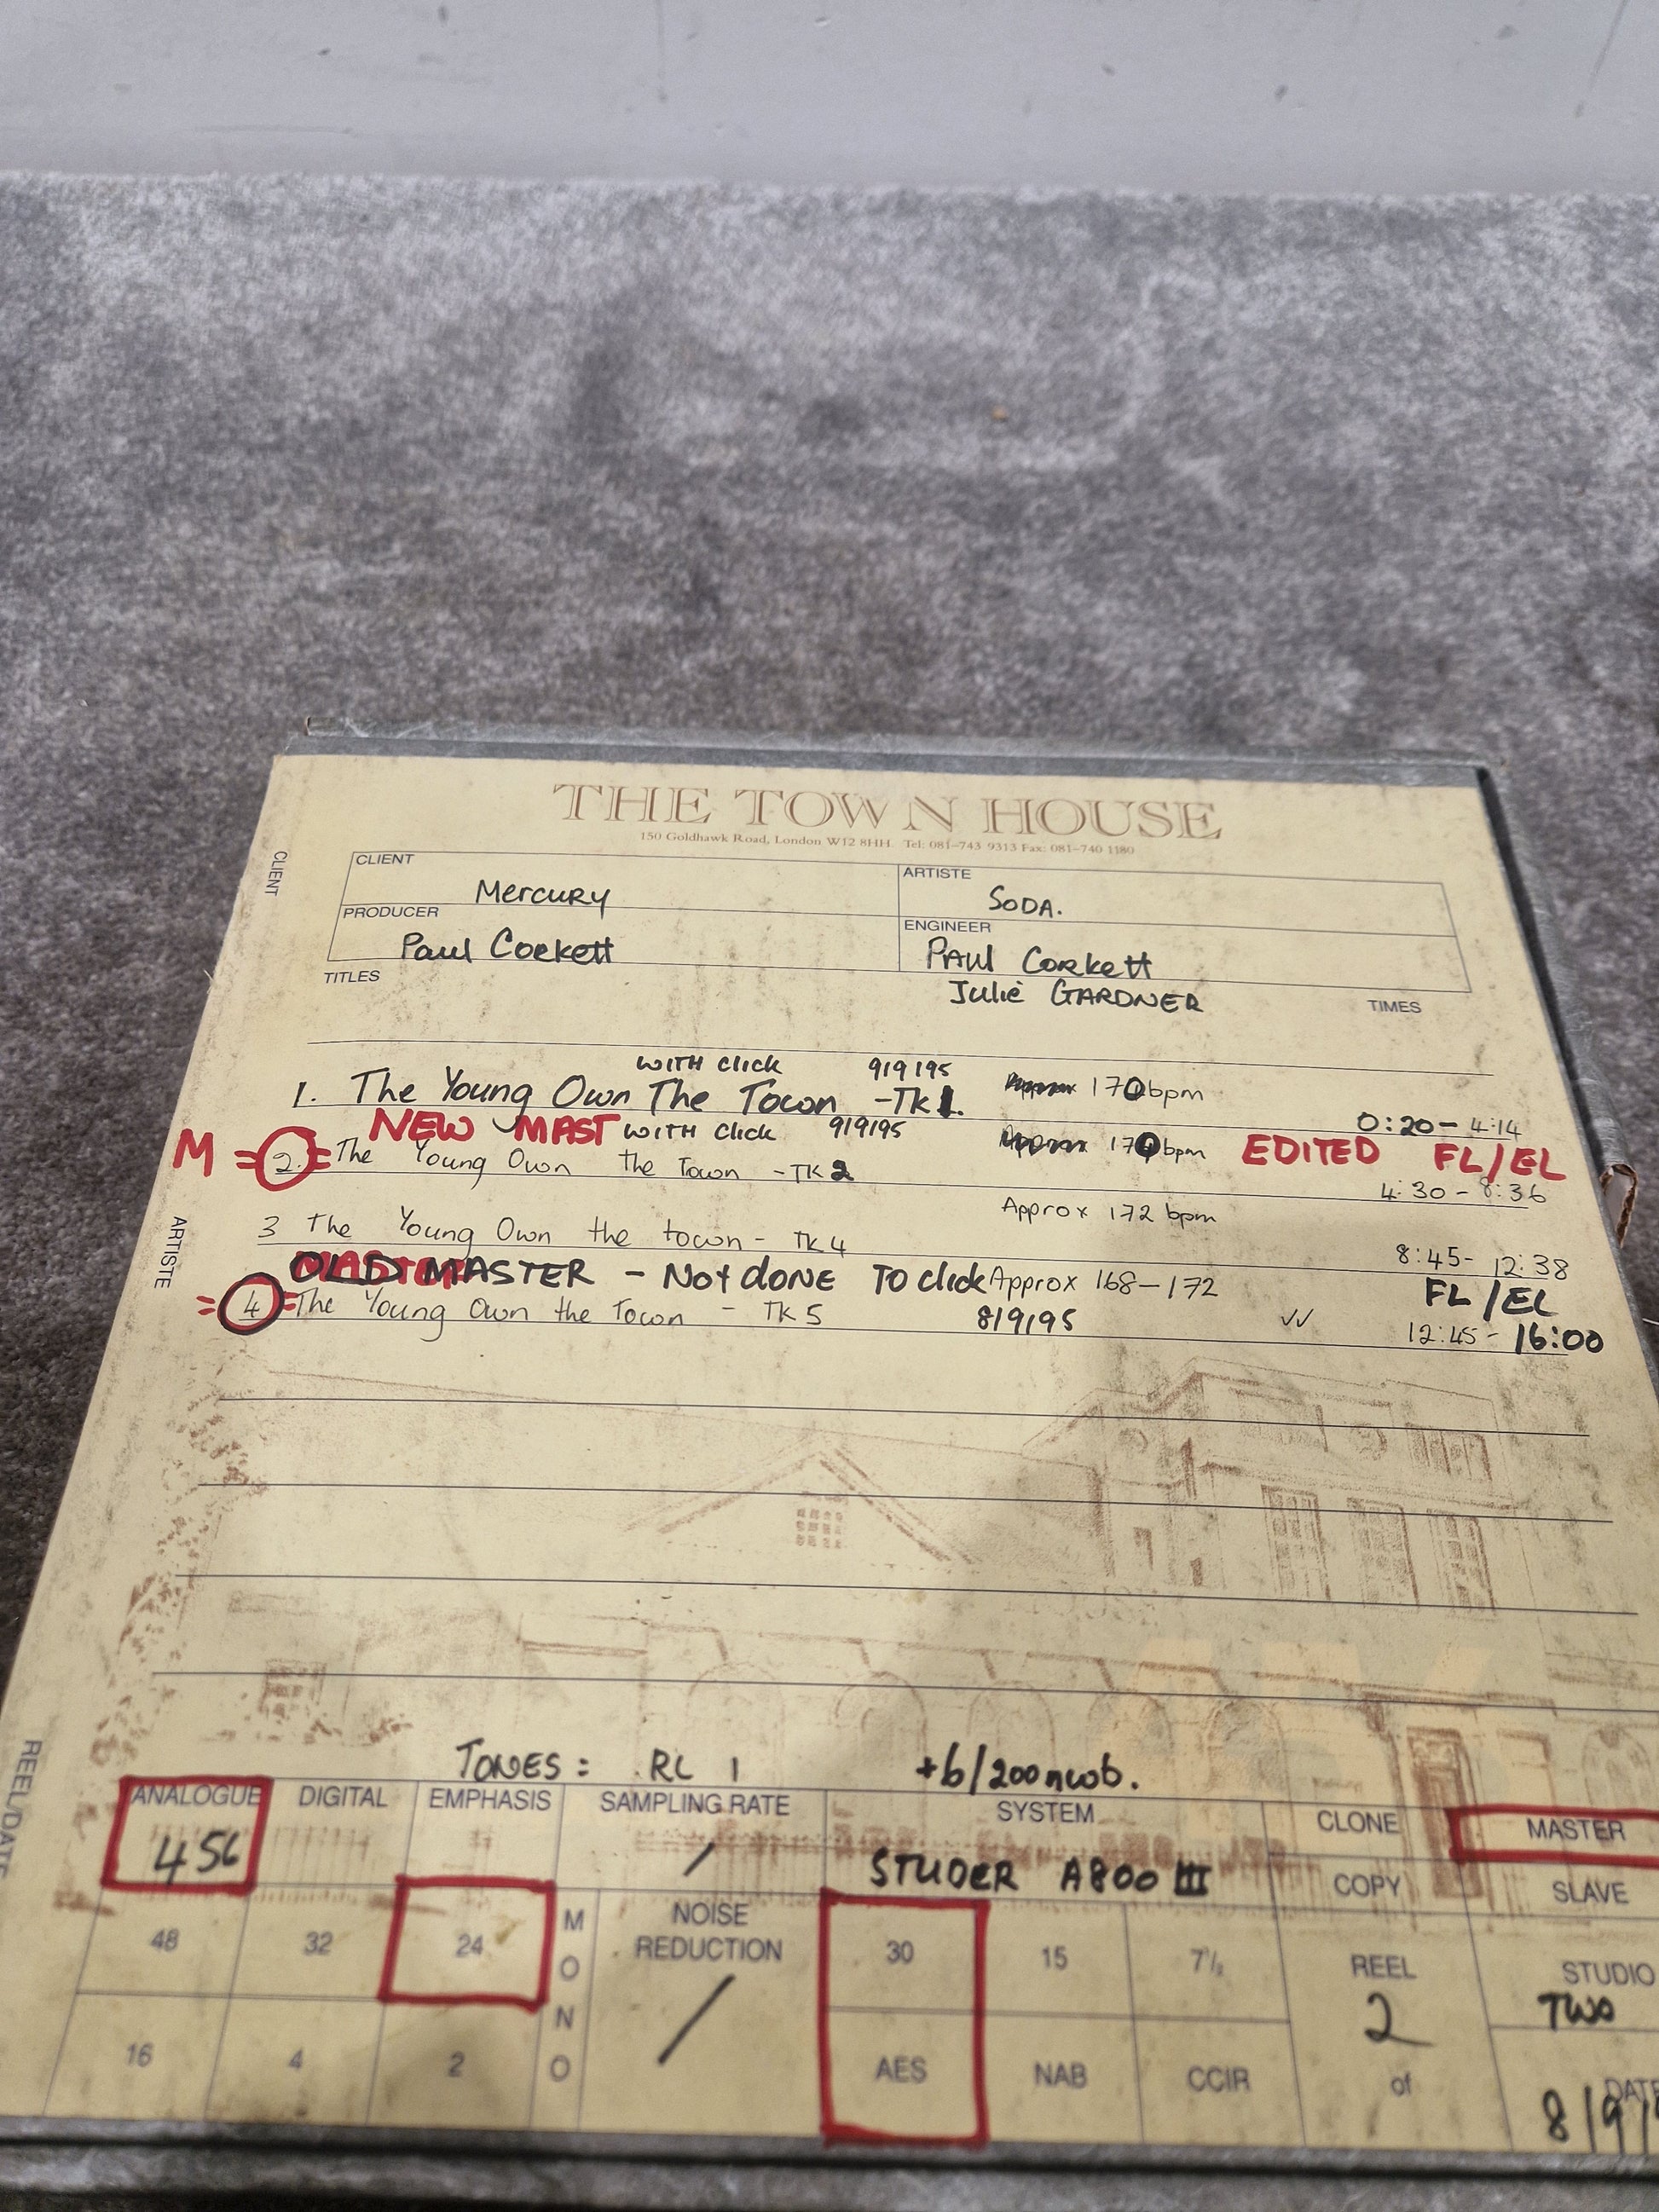 THE TOWN HOUSE
150 Goldhawk Road, London W12 8HH. Tel: 081-743 9313 Fax: 081-740 1180
CLIENT
CLIENT Mercury
ARTISTE SODA.
PRODUCER Paul Corkett
ENGINEER PAUL CORKETT
Julie GARDNER
TITLES
TIMES
WITH click 9/9/95
1. The Young Own The Town -TK 1. 170bpm
0:20- 4:14
NEW MAST WITH click 9/9/95
M =2.= The Young Own the Town -TK 2 170bpm EDITED FL/EL
4:30 - 8:36
Approx 172 bpm
ARTISTE
3 The Young Own the town - TK 4
8:45- 12:38
OLD MASTER - NOT dONE TO click Approx 168-172 FL/EL
=4= The Young Own the Town - TK 5 8/9/95 ✓✓
12:45 - 16:00
REEL/DATE
TONES: RL 1 +6/200nwb.
ANALOGUE DIGITAL EMPHASIS SAMPLING RATE SYSTEM CLONE MASTER
456 / STUDER A800 III COPY SLAVE
48 32 24 MONO NOISE REDUCTION 30 15 7½ REEL STUDIO
/ 2 TWO
16 4 2 AES NAB CCIR of DATE
8/9/